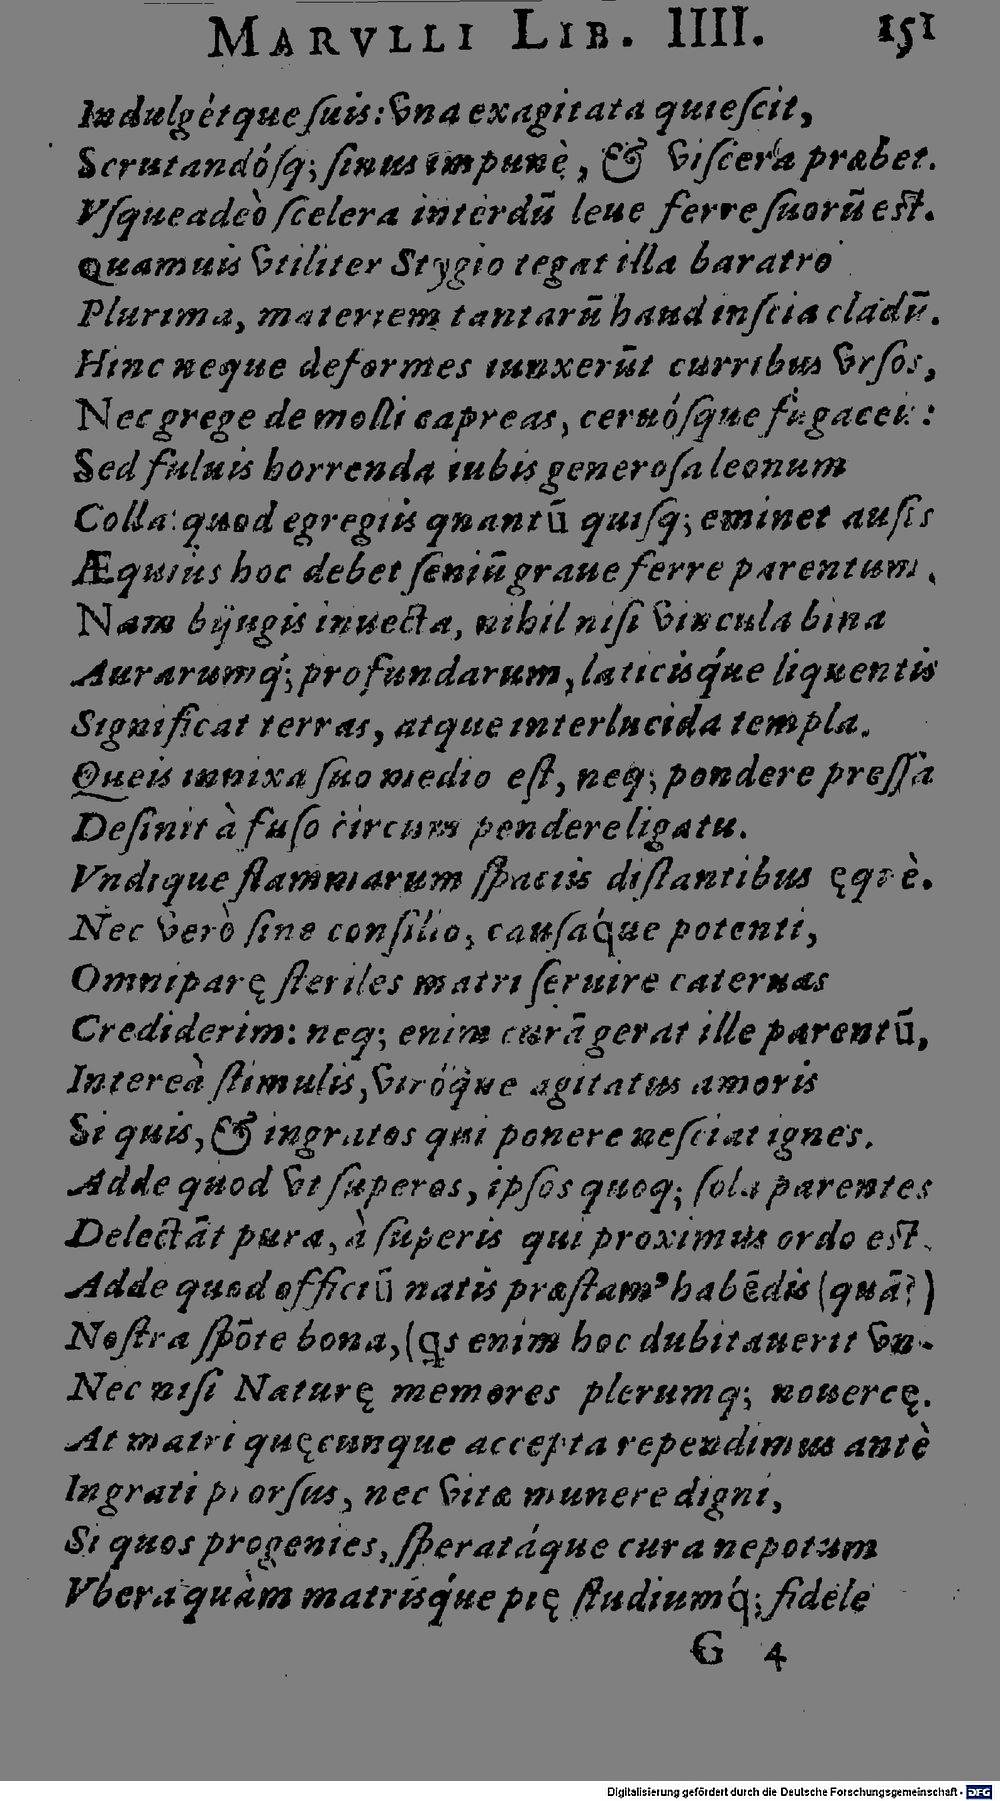 MARVLLI LIB. IIII. 151
Indulgétque ſuis: vna exagitata quieſcit,
Scrutandóſq; ſinus impunè, & viſcera præbet.
Vſqueadeò ſcelera interdū leue ferre ſuorū eſt.
Quamuis vtiliter Stygio tegat illa baratro
Plurima, materiem tantarū haud inſcia cladū.
Hinc neque deformes iunxerūt curribus vrſos,
Nec grege de molli capreas, ceruóſque fugaceis:
Sed fuluis horrenda iubis generoſa leonum
Colla: quod egregiis quantū quiſq; eminet auſis
Æquius hoc debet ſeniū graue ferre parentum.
Nam bijugis inuecta, nihil niſi vincula bina
Aurarumq́; profundarum, laticisq́ue liquentis
Significat terras, atque interlucida templa.
Queis innixa ſuo medio eſt, neq; pondere preſſa
Deſinit à fuſo circum pendere ligatu.
Vndique flammarum ſpaciis diſtantibus ęquè.
Nec verò ſine conſilio, cauſaq́ue potenti,
Omniparę ſteriles matri ſeruire cateruas
Crediderim: neq; enim curā gerat ille parentū,
Intereà ſtimulis, viróq̀ue agitatus amoris
Si quis, & ingratos qui ponere neſciat ignes.
Adde quod vt ſuperos, ipſos quoq; ſola parentes
Delectāt pura, à ſuperis qui proximus ordo eſt.
Adde quod officiū natis præſtamꝰ habēdis (quā?)
Noſtra ſpōte bona, (qs enim hoc dubitauerit vn-
Nec niſi Naturę memores plerumq; nouercę.
At matri quęcunque accepta rependimus antè
Ingrati prorſus, nec vitæ munere digni,
Si quos progenies, ſperatáque cura nepotum
Vbera quàm matrisq́ue pię ſtudiumq́; fidele
G 4
Digitalisierung gefördert durch die Deutsche Forschungsgemeinschaft - DFG